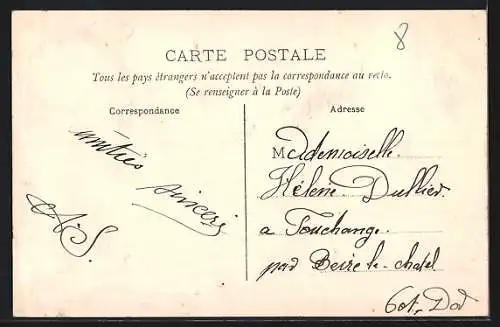 8
CARTE POSTALE
Tous les pays étrangers n'acceptent pas la correspondance au recto.
(Se renseigner à la Poste)
Correspondance
Adresse
amitiés
sincères
A. S.
Mademoiselle
Hélène Dullier
a Touchange
par Beire le-chatel
Cot, Dor